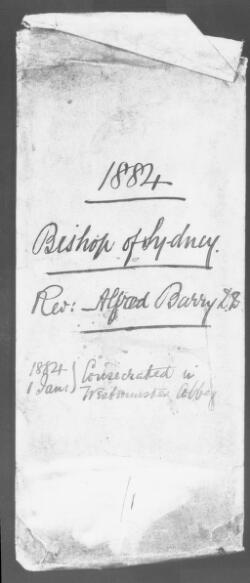 1884
Bishop of Sydney.
Rev: Alfred Barry D.D
1884 } Consecrated in
1 Jany } Westminster Abbey
/1